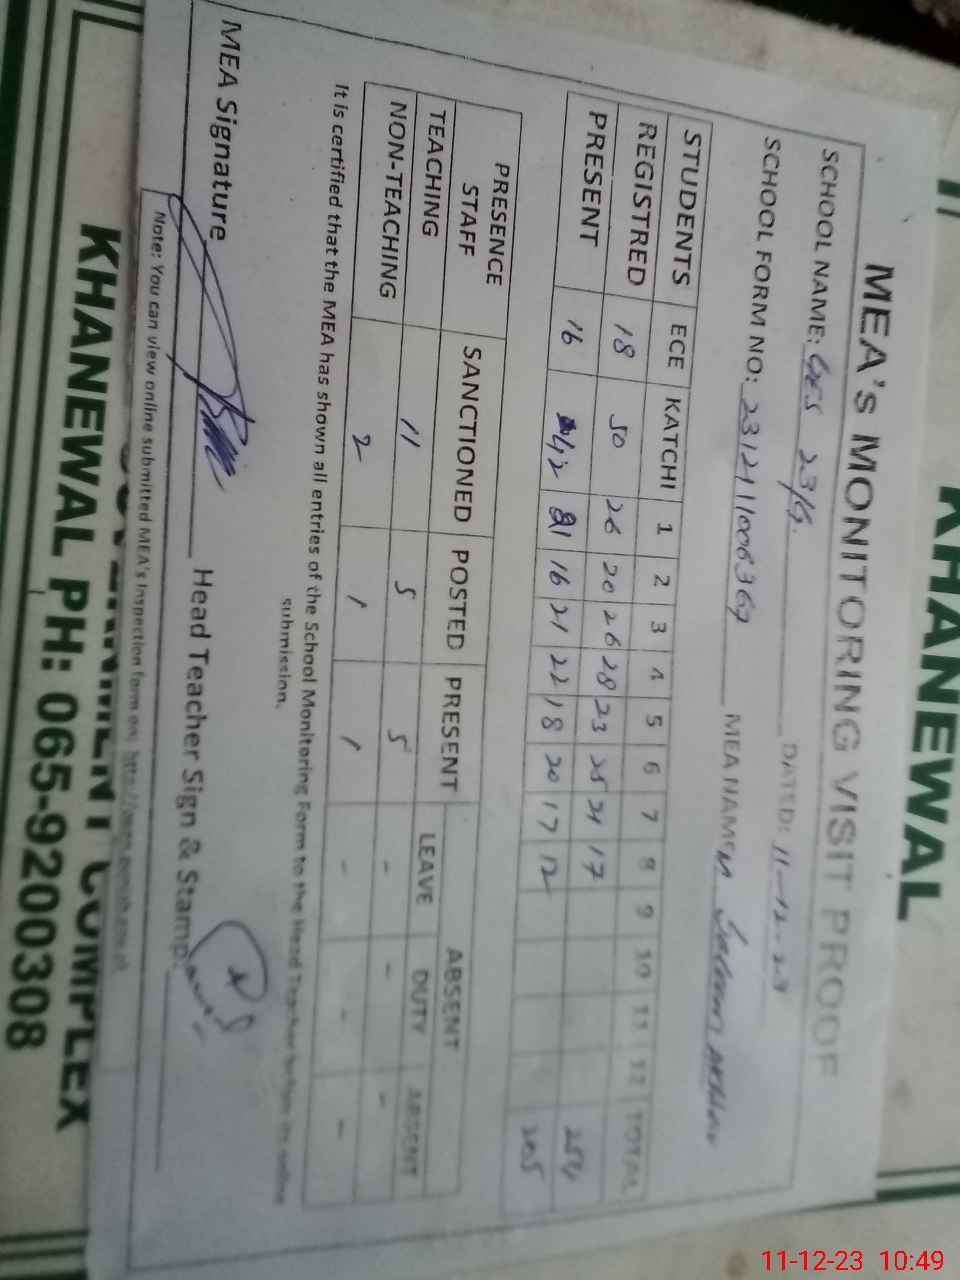 KHANEWAL
MEA'S MONITORING VISIT PROOF
SCHOOL NAME: GES 23/G. DATED: 11-12-23
SCHOOL FORM NO: 23121100636 MEA NAME
STUDENTS ECE KATCHI 1 2 3 4 5 6 7 8 9 10 11 12 TOTAL
REGISTRED 18 50 26 20 26 28 23 25 21 17 254
PRESENT 16 42 21 16 21 22 18 20 17 12 205
PRESENCE STAFF SANCTIONED POSTED PRESENT ABSENT
LEAVE DUTY ABSENT
TEACHING 11 5 5 - - -
NON-TEACHING 2 1 1 - - -
It is certified that the MEA has shown all entries of the School Monitoring Form to the Head Teacher before its online
submission.
MEA Signature Head Teacher Sign & Stamp:
Note: You can view online submitted MEA's Inspection form on:
COMPLEX
KHANEWAL PH: 065-9200308
11-12-23 10:49